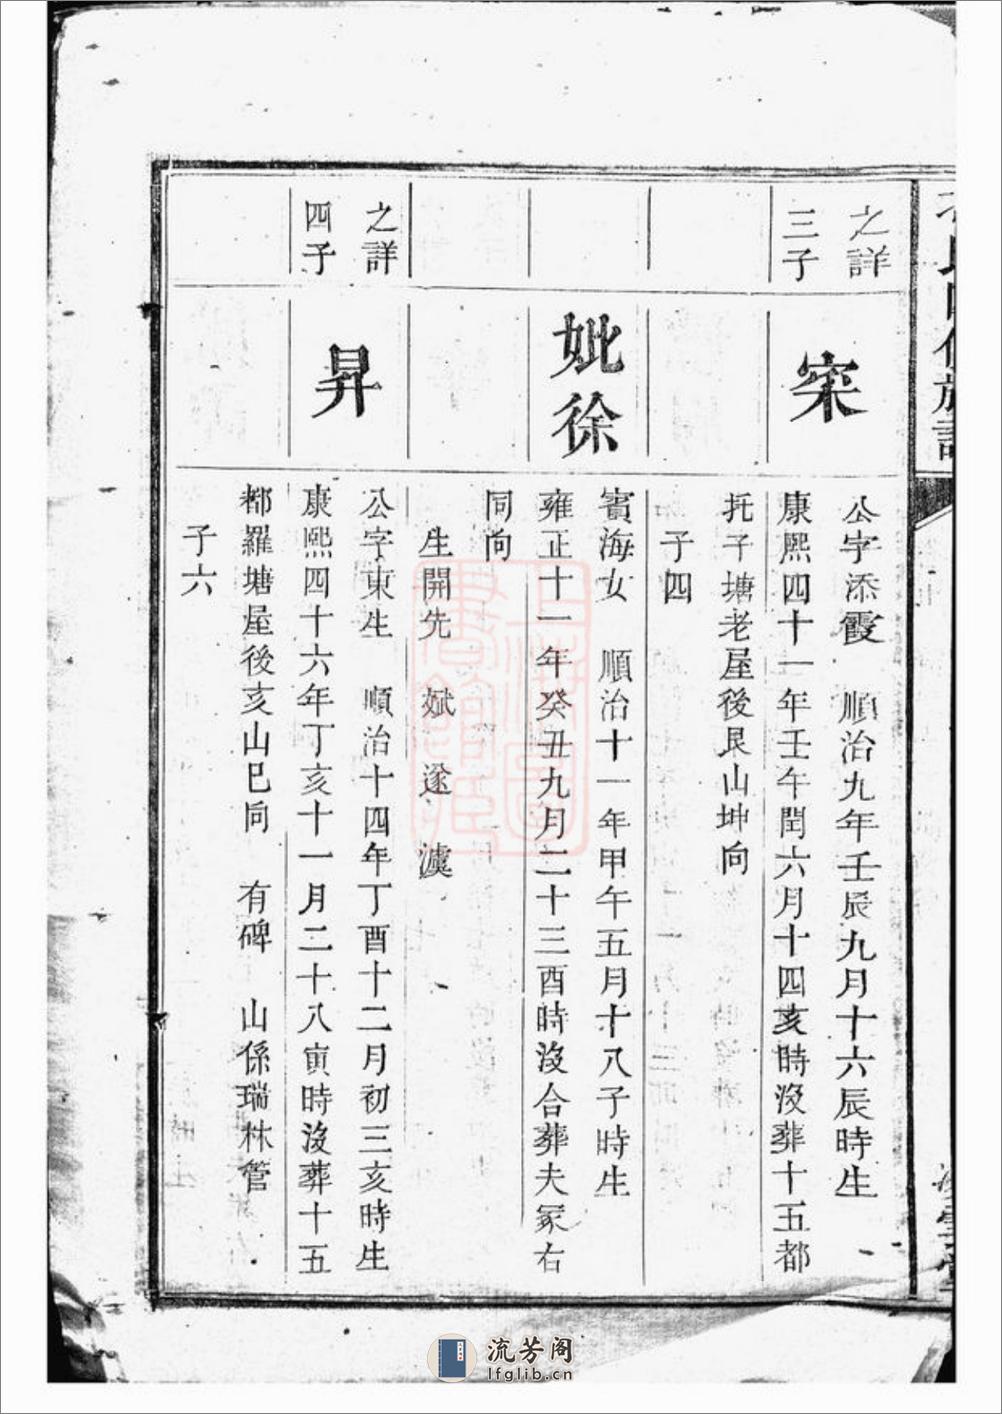 之詳
三子
寀
公字添霞　順治九年壬辰九月十六辰時生
康熙四十一年壬午閏六月十四亥時沒葬十五都
托子塘老屋後艮山坤向
子四
妣徐
賓海女　順治十一年甲午五月十八子時生
雍正十一年癸丑九月二十三酉時沒合葬夫冢右
同向
生開先　斌　遂
之詳
四子
昇
公字東生　順治十四年丁酉十二月初三亥時生
康熙四十六年丁亥十一月二十八寅時沒葬十五
都羅塘屋後亥山巳向　有碑　山係瑞林管
子六
上海圖書館藏
流芳阁
lfglib.cn